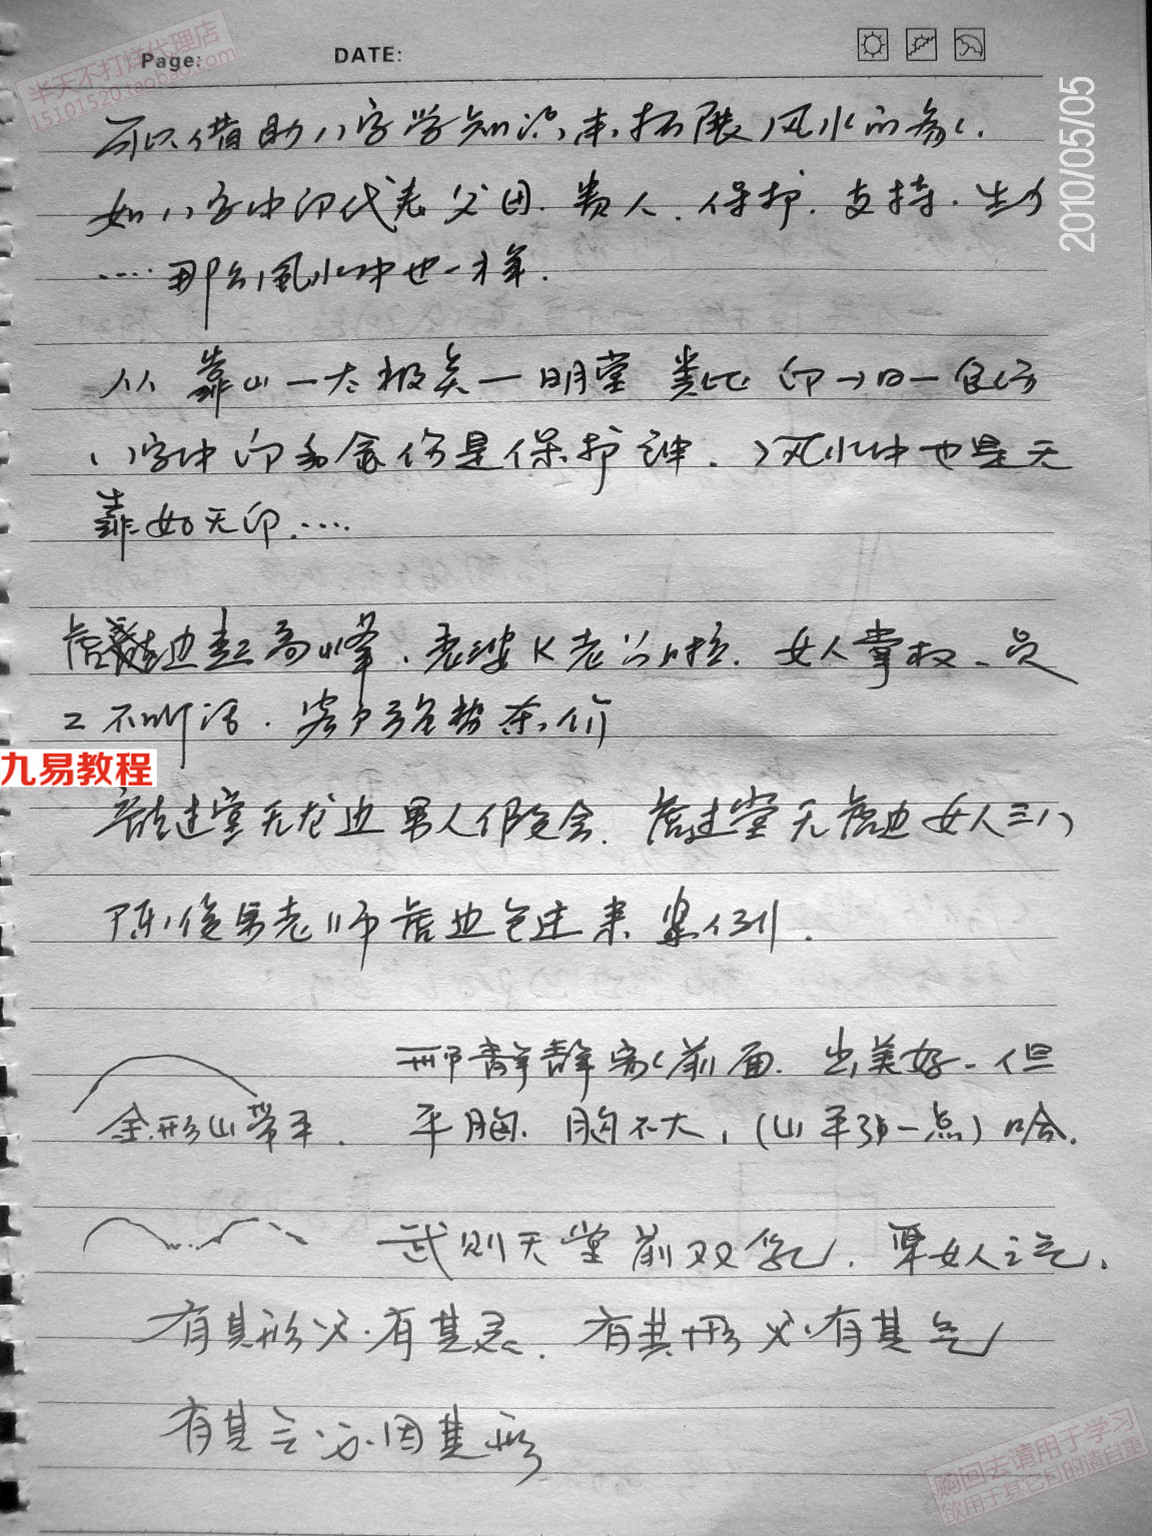 半天不打烊代理店
15101520.taobao.com
Page:
DATE:
2010/05/05
可以借助八字学知识来拓展风水的象.
如八字中印代表父母.贵人.保护.支持.生
....那么风水中也一样.
从靠山一太极点一明堂 类比 印→日一食伤
八字中印和食伤是保护神.风水中也是无
靠如无印.....
虎边起高峰.老婆K老公.女人掌权、员
工不听话.客户强势杀价
龙过堂无龙边男人 虎过堂无虎边女人三八
九易教程
陈俊男老师虎边包过来案例.
邢静静家前面.出美好.但
金形山带平.
平胸.胸不大,(山平 一点)哈.
武则天堂前双乳.聚女人之气.
有其形必有其灵.有其形必有其气
有其气必因其形
购回去请用于学习
欲用于其它目的请自重